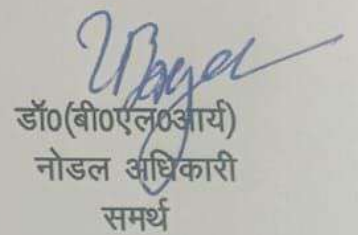 डॉ0(बी0एल0आर्य)
नोडल अधिकारी
समर्थ